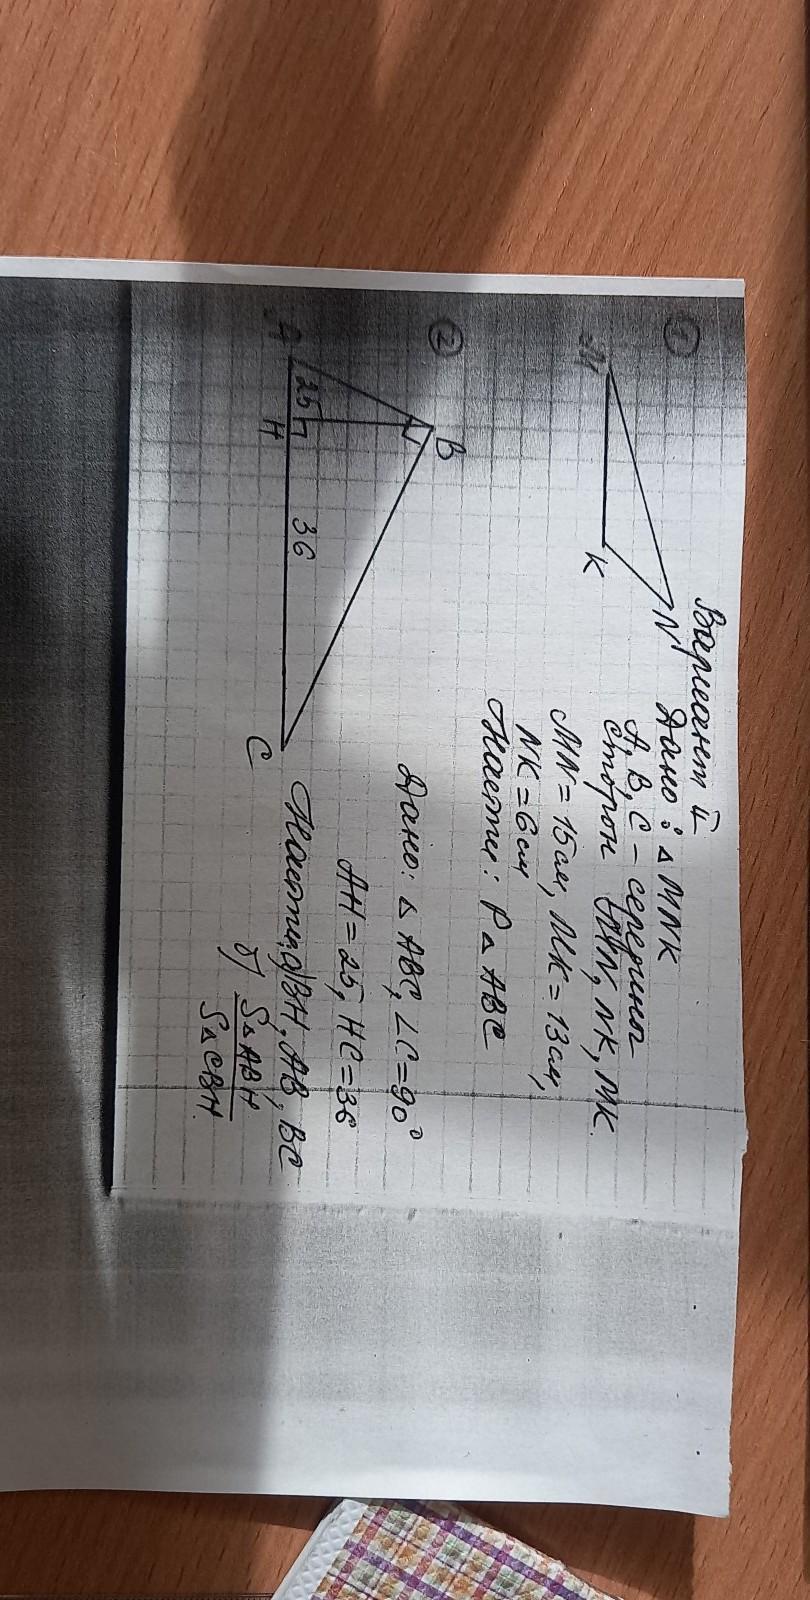 Вариант II
①
M
N
K
Дано: △ MNK
A, B, C - середины
сторон MN, NK, MK.
MN = 15см, MK = 13см,
NK = 6см
Найти: P△ ABC
②
A
B
C
H
25
36
Дано: △ ABC, ∠C = 90°
AH = 25, HC = 36
Найти: а) BH, AB, BC
б) S△ ABH
S△ CBH.